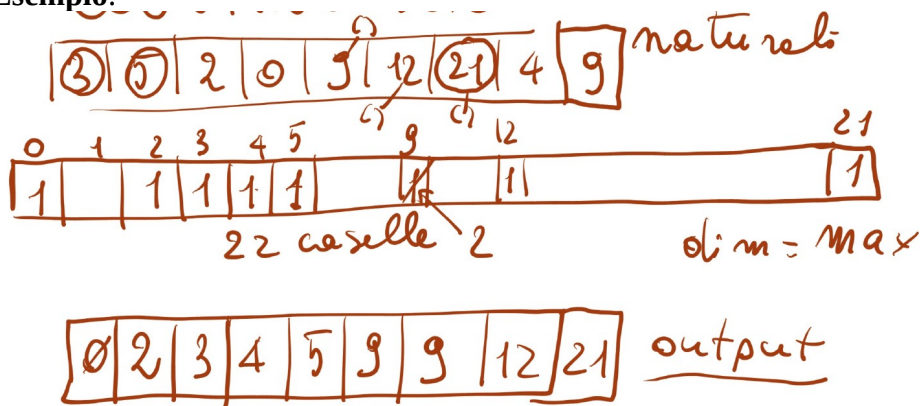 Esempio:
3 5 2 0 9 12 21 4 9 naturali
0 1 2 3 4 5 9 12 21
1 1 1 1 1 1 1 1
22 caselle 2 dim = max
0 2 3 4 5 9 9 12 21 output